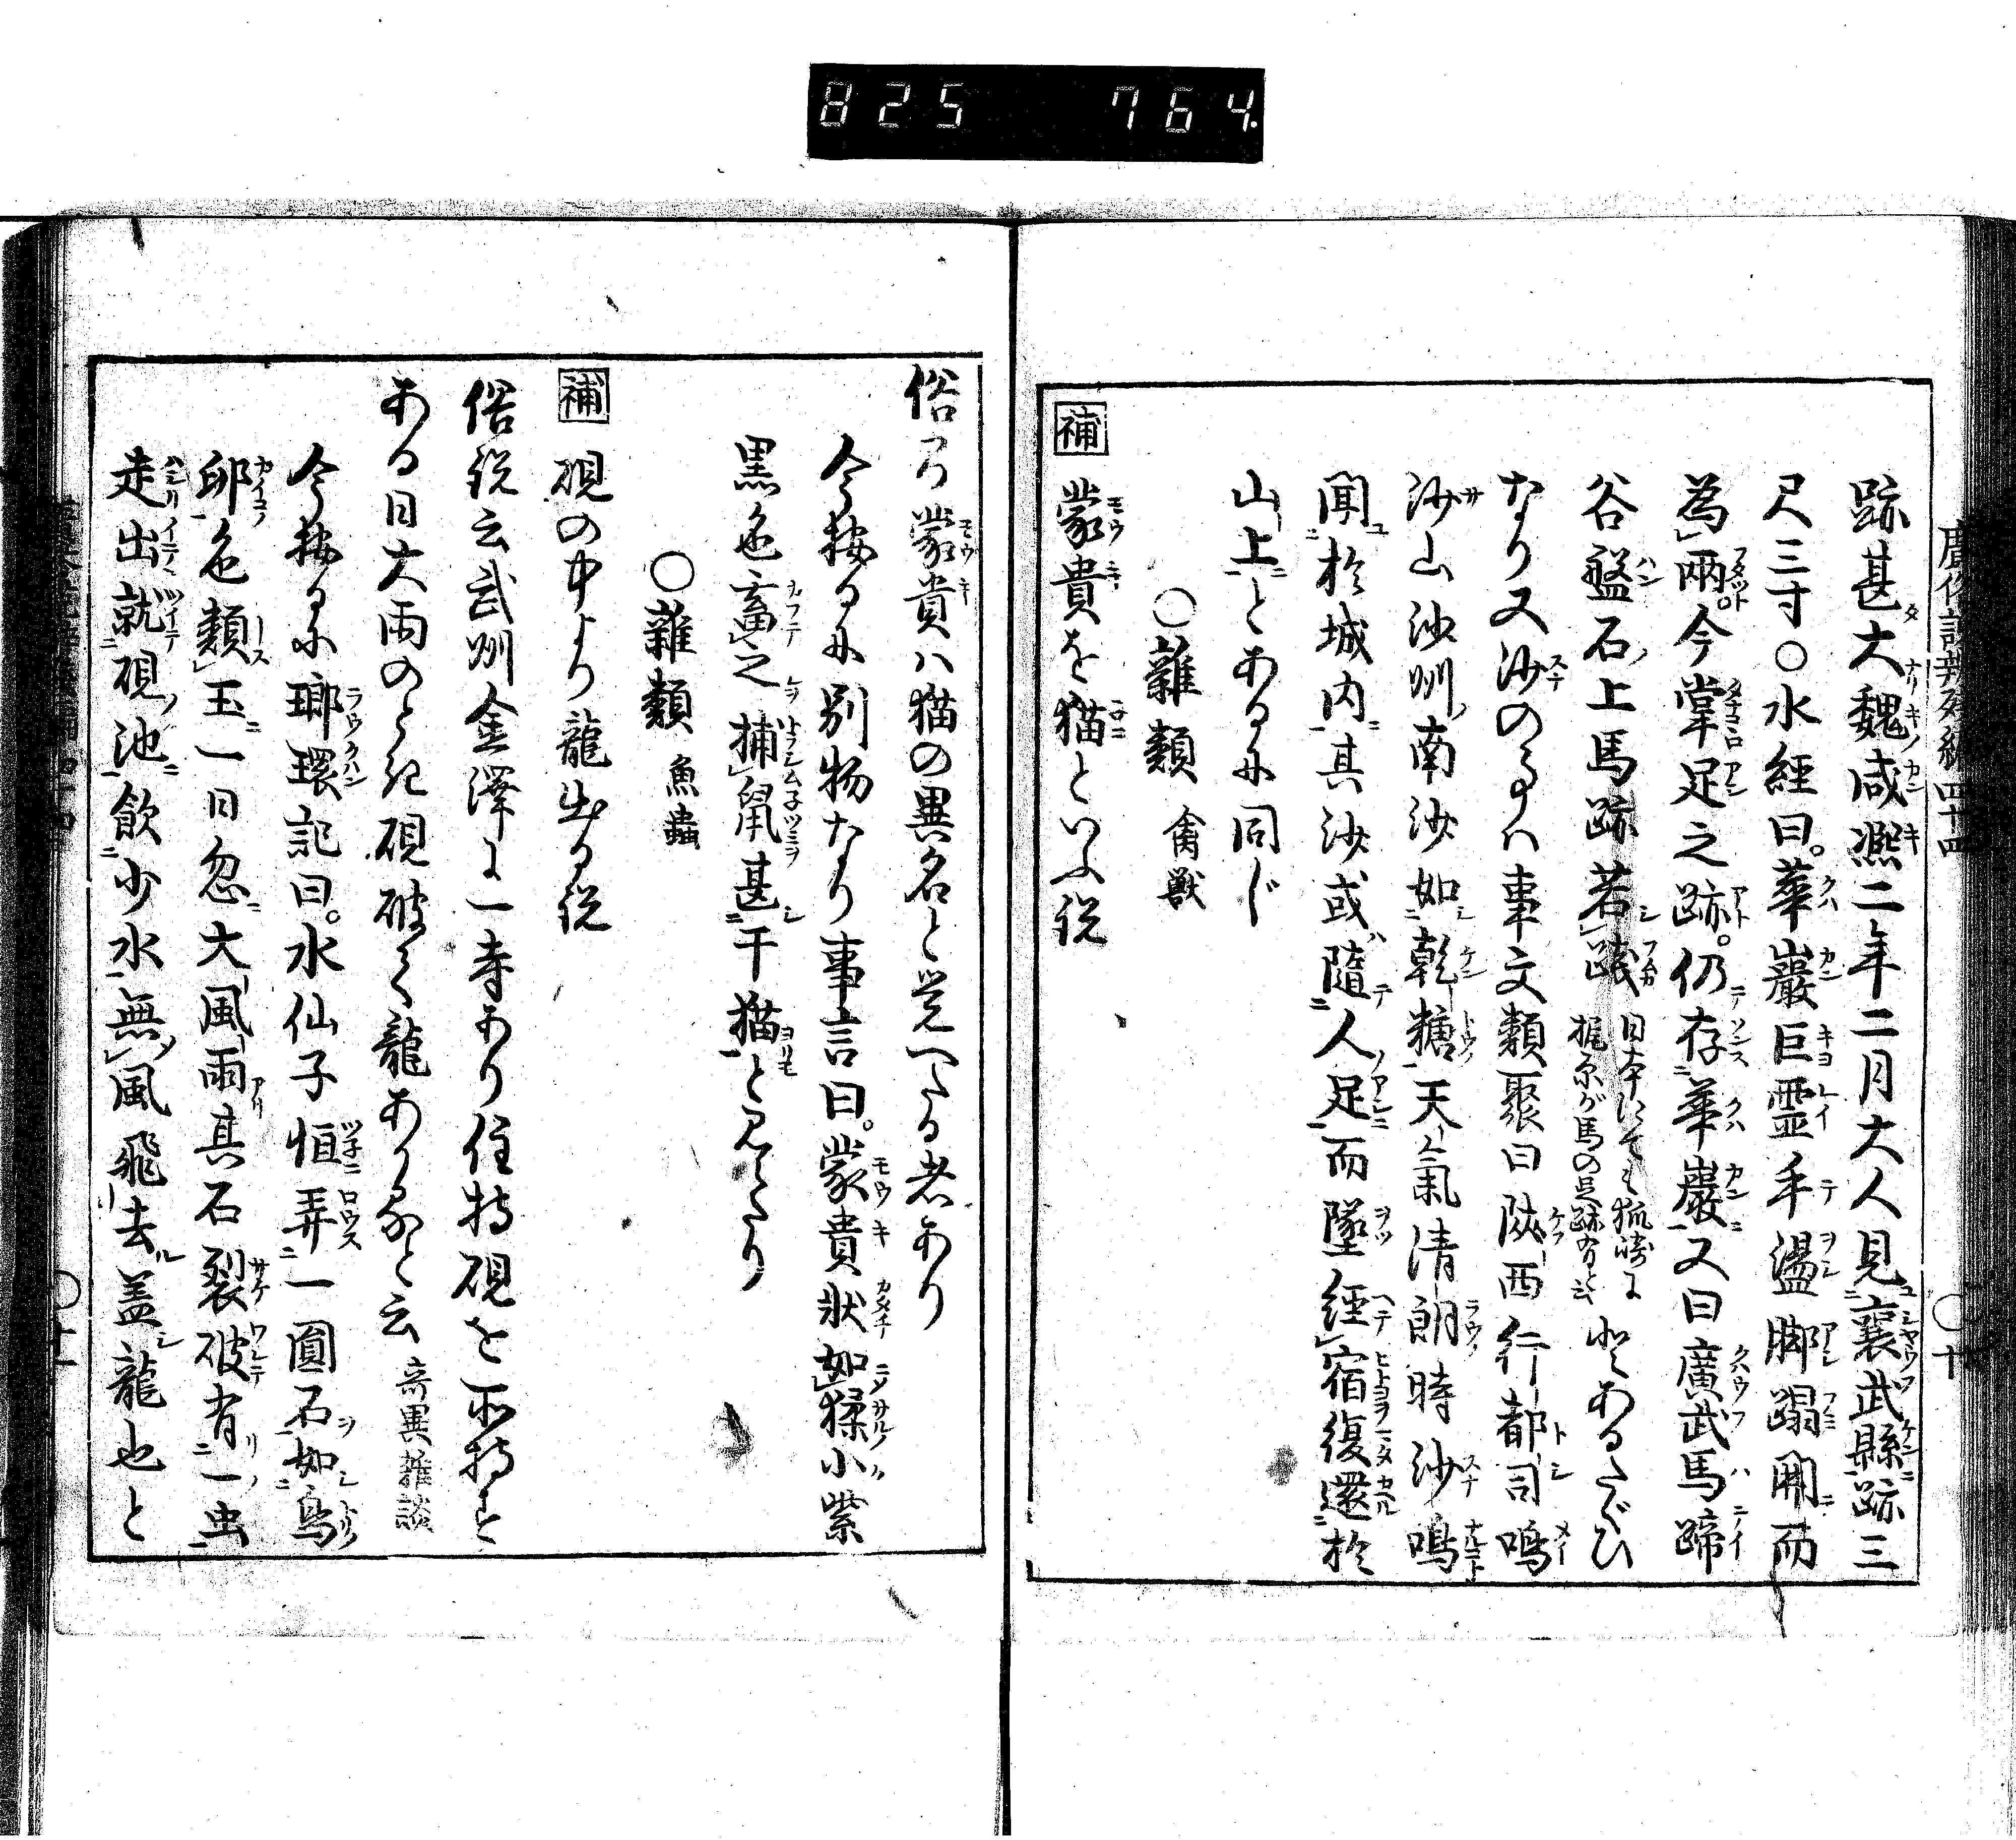 825 764.
廣俗説辨殘編四十四
跡甚大魏咸熈二年二月大人見襄武縣跡三
尺三寸○水經曰。華巖巨霊手盪脚蹋開而
為兩。今掌足之跡。仍存華巖又曰廣武馬蹄
谷盤石上馬跡若踐
日本にても狐崎に
梶原が馬の足跡有と云
とあるたぐひ
なり又沙のなるハ事文類聚曰陝西行都司鳴
沙山沙州南沙如乾糖天氣清朗時沙鳴
聞於城内其沙或隨人足而墜經宿復還於
山上とあるに同じ
○雜類 禽獸
補 蒙貴を猫といふ説
俗間蒙貴ハ猫の異名と覚へたる者あり
今按るに別物なり事言曰。蒙貴狀如猱小紫
黒色畜之捕鼠甚于猫と見へたり
○雜類 魚蟲
補 硯の中より龍出る説
俗説云武州金澤に一寺あり住持硯を所持す
ある日大雨のとき硯破て龍あがると云 奇異雑談
今按るに瑯環記曰。水仙子恒弄一圓石如鳥
卵色類玉一日忽大風雨其石裂破有一虫
走出就硯池飲少水無風飛去盖龍也と